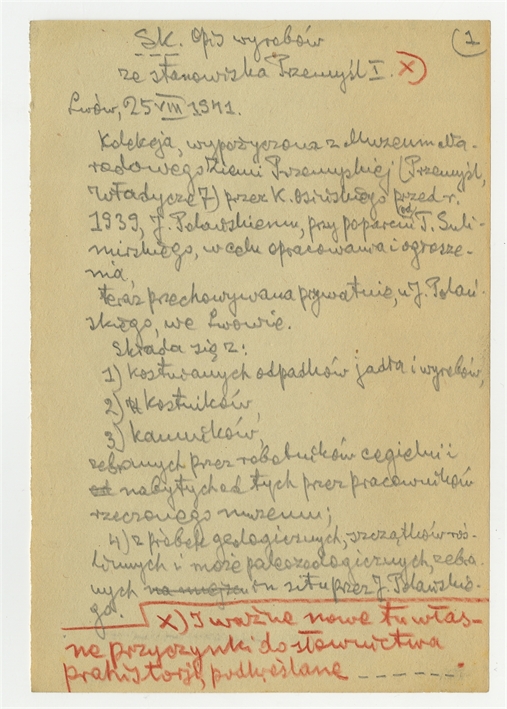 1
Sk. Opis wyrobów
ze stanowiska Przemyśl I. x)
Lwów, 25 VIII 1941.
Kolekcja, wypożyczona z Muzeum Na-
rodowego Ziemi Przemyskiej (Przemyśl,
Władycze 7) przez K. Osińskiego przed r.
1939, J. Polańskiemu, przy poparciu T. Suli-
mirskiego, w celu opracowania i ogłosze-
nia,
teraz przechowywana prywatnie, u J. Polań-
skiego, we Lwowie.
Składa się z:
1) kostnianych odpadków jadła i wyrobów,
2) kostników,
3) kamników,
zebranych przez robotników cegielni i
nabytych od tych przez pracowników
rzeczonego muzeum;
4) z próbek geologicznych, szczątków roś-
linnych i może paleozoologicznych, zebra-
nych na miejscu in situ przez J. Polańskie-
go.
x) I ważne nowe tu włas-
ne przyczynki do słownictwa
prehistorji, podkreślane